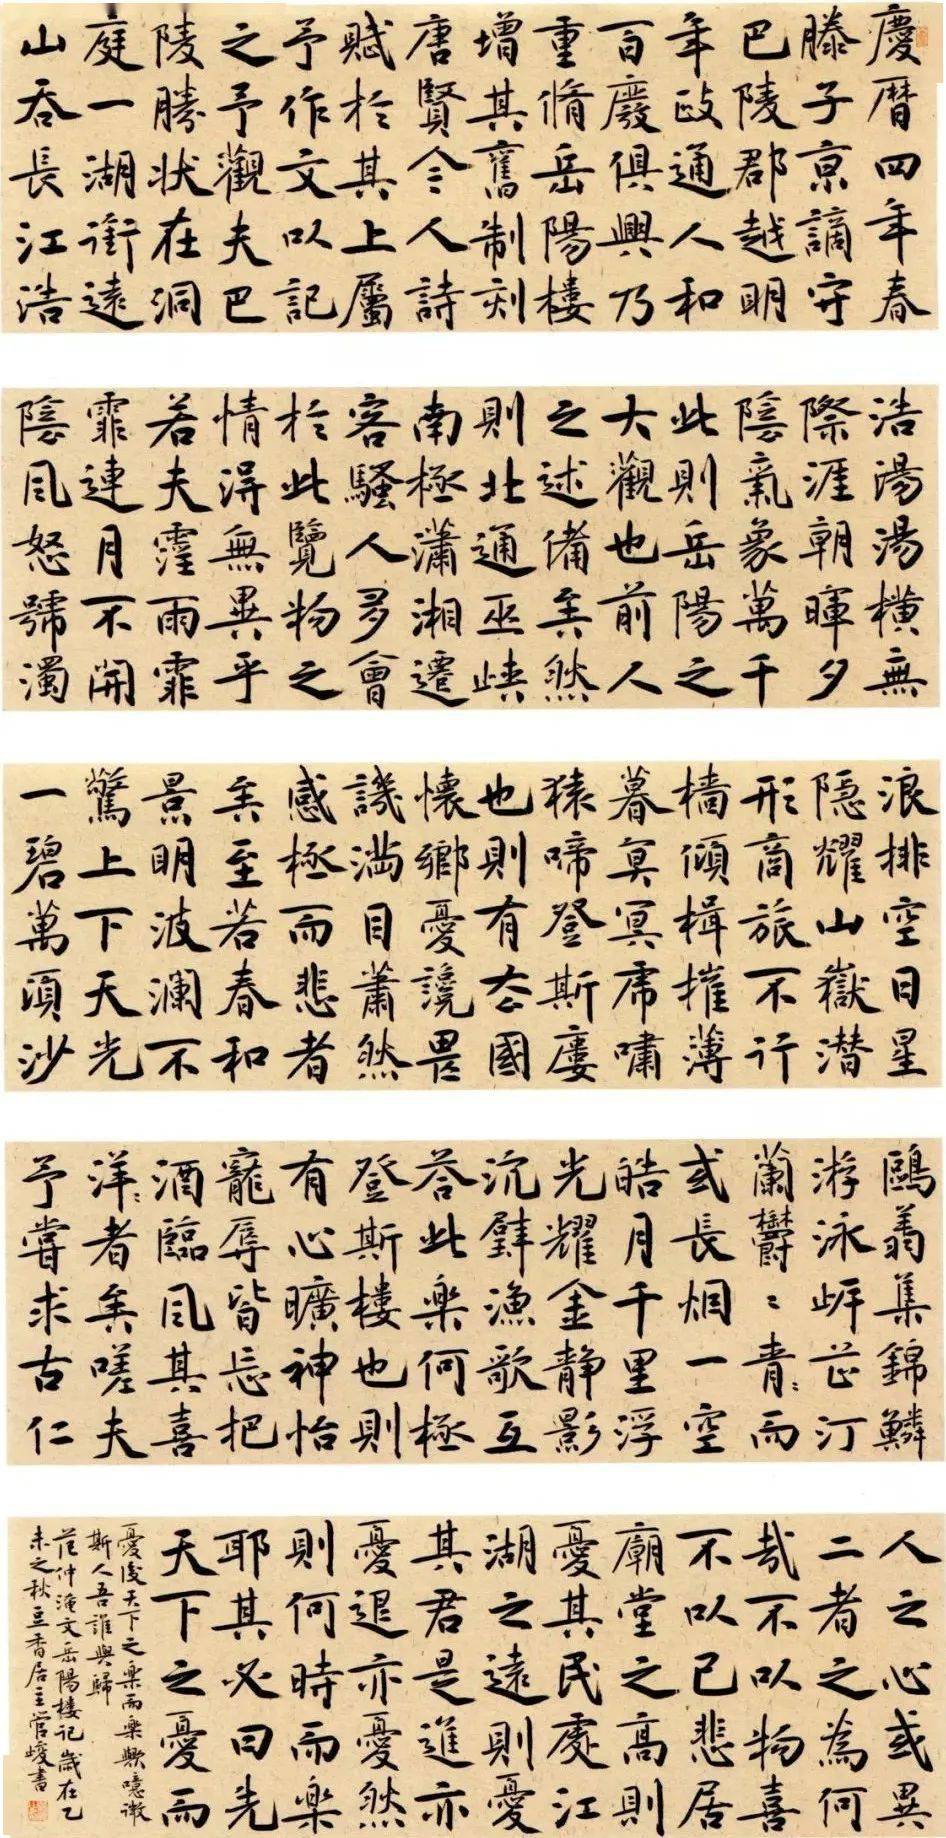 慶曆四年春
滕子京謫守
巴陵郡越明
年政通人和
百廢俱興乃
重脩岳陽樓
增其舊制刻
唐賢今人詩
賦於其上屬
予作文以記
之予觀夫巴
陵勝状在洞
庭一湖銜遠
山吞長江浩
浩湯湯橫無
際涯朝暉夕
陰氣象萬千
此則岳陽之
大觀也前人
之述備矣然
則北通巫峽
南極瀟湘遷
客騷人多會
於此覽物之
情得無異乎
若夫霪雨霏
霏連月不開
陰風怒號濁
浪排空日星
隱耀山嶽潛
形商旅不行
檣傾楫摧薄
暮冥冥虎嘯
猿啼登斯樓
也則有去國
懷鄉憂讒畏
譏滿目蕭然
感極而悲者
矣至若春和
景明波瀾不
驚上下天光
一碧萬頃沙
鷗翔集錦鱗
游泳岸芷汀
蘭欝〻青〻而
或長烟一空
皓月千里浮
光耀金静影
沉璧漁歌互
荅此樂何極
登斯樓也則
有心曠神怡
寵辱皆忘把
酒臨風其喜
洋〻者矣嗟夫
予嘗求古仁
人之心或異
二者之為何
哉不以物喜
不以己悲居
廟堂之高則
憂其民處江
湖之遠則憂
其君是進亦
憂退亦憂然
則何時而樂
耶其必曰先
天下之憂而
憂後天下之樂而樂歟噫微
斯人吾誰與歸
范仲淹文岳陽樓記歲在乙
未之秋豆香居主管峻書